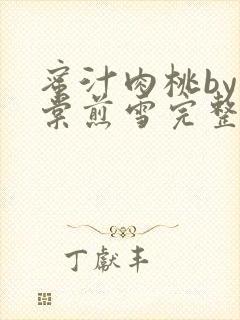 蜜汁肉桃by
棠煎雪完整
丁献丰